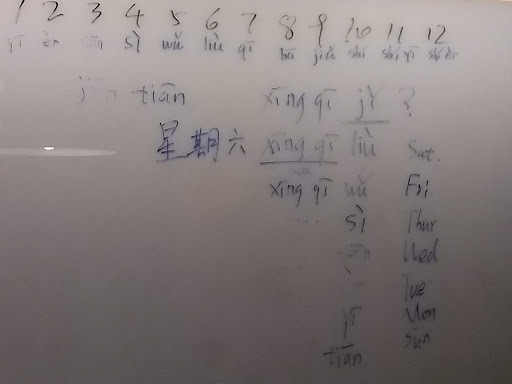 1 2 3 4 5 6 7 8 9 10 11 12
yī èr sān sì wǔ liù qī bā jiǔ shí shí yī shí èr
jīn tiān xīng qī jǐ ?
星期六 xīng qī liù Sat.
xīng qī wǔ Fri
... sì Thur
Wed
Tue
yī Mon
tiān Sun